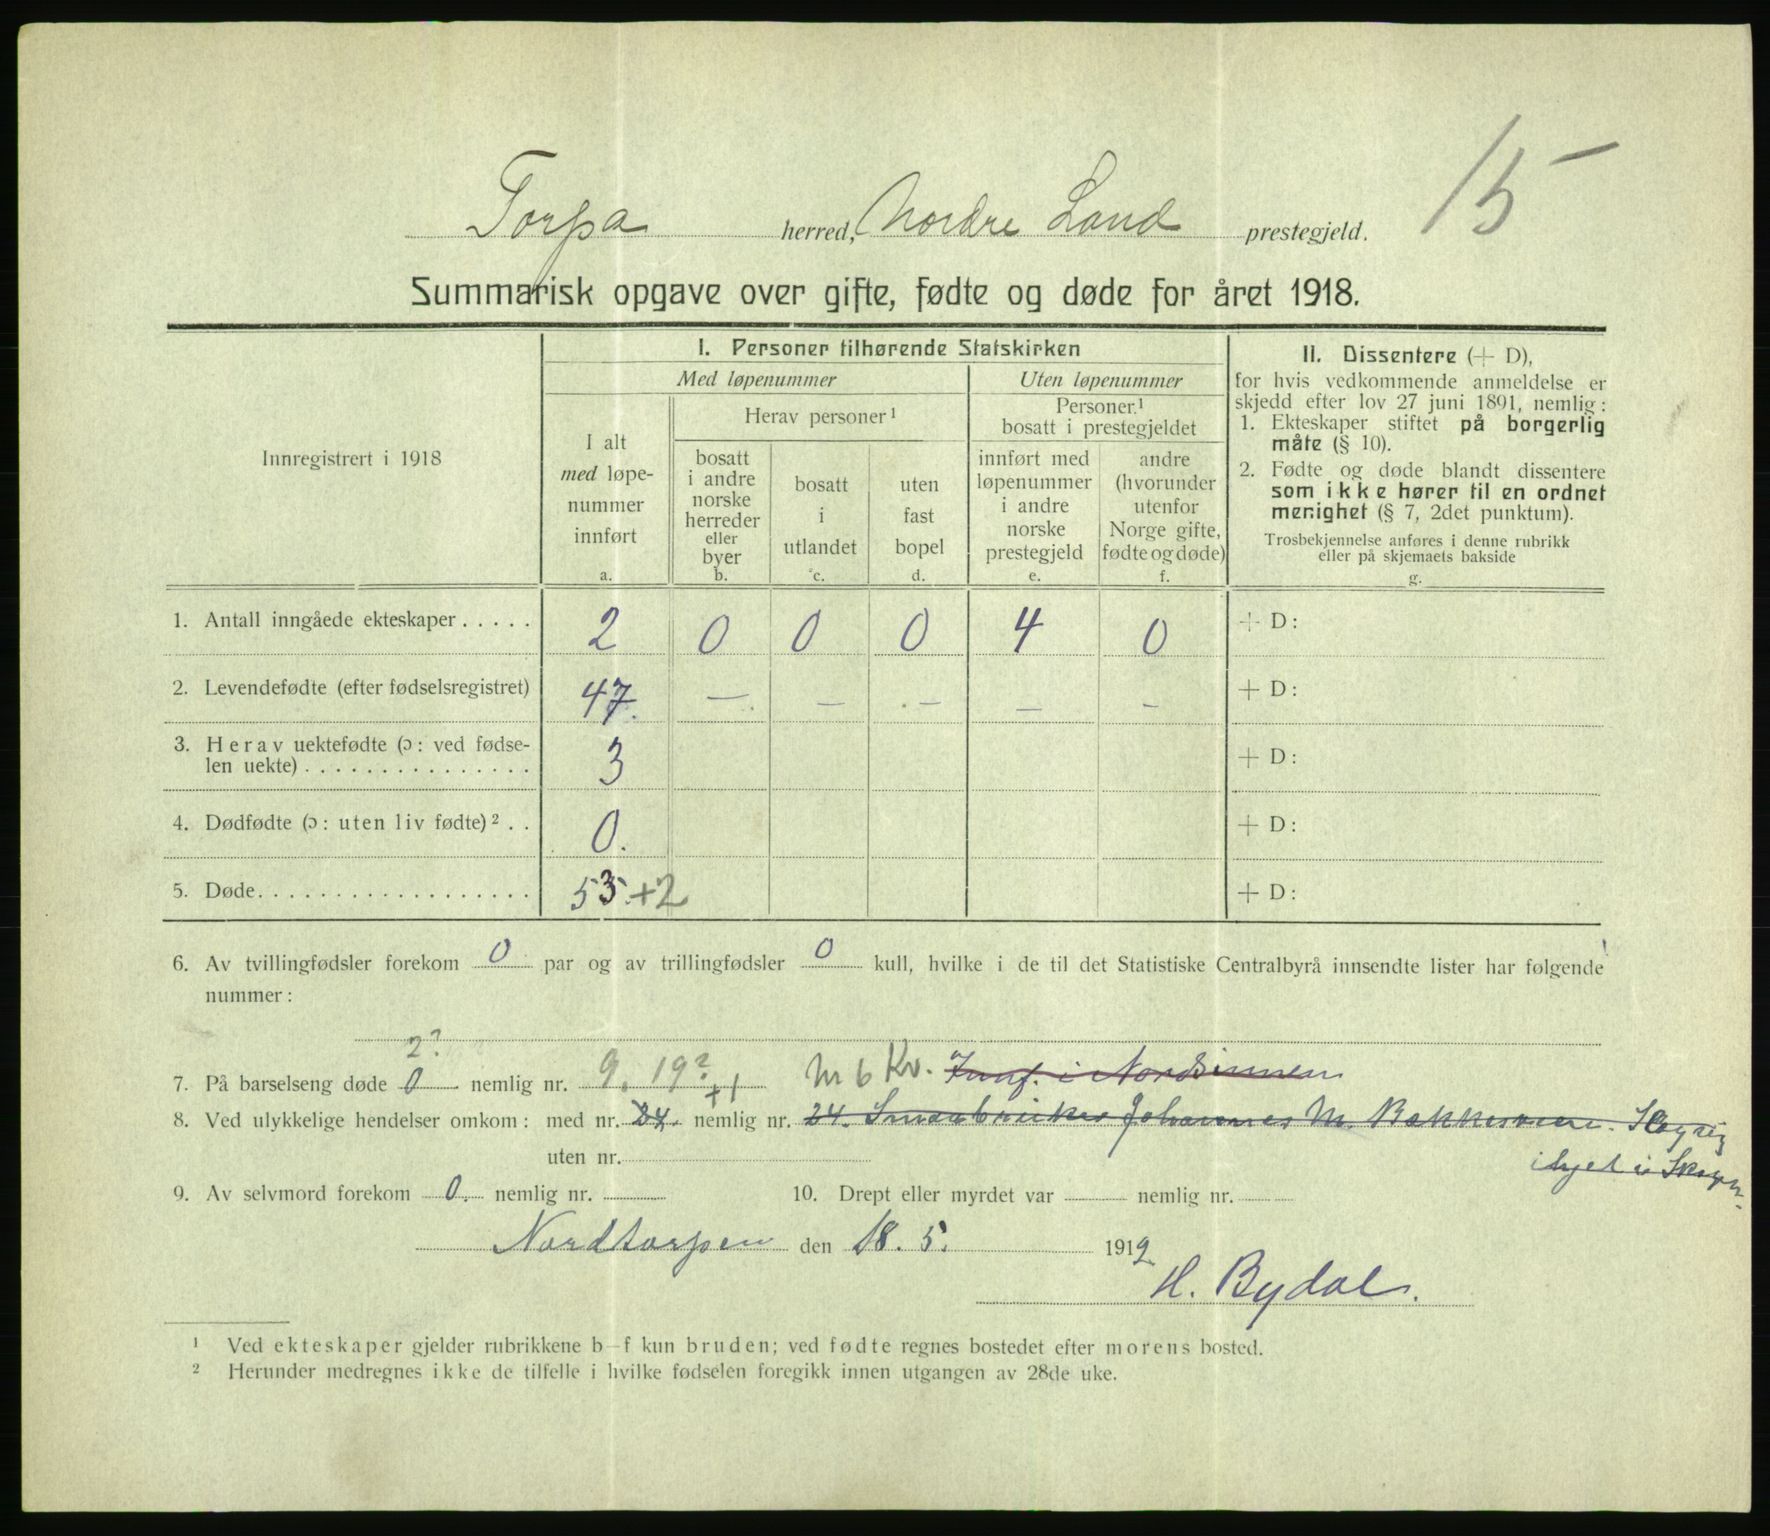 15
Torpa herred, Nordre Land prestegjeld.
Summarisk opgave over gifte, fødte og døde for året 1918.
Innregistrert i 1918
I. Personer tilhørende Statskirken
Med løpenummer
Uten løpenummer
I alt
med løpe-
nummer
innført
a.
Herav personer¹
bosatt
i andre
norske
herreder
eller
byer
b.
bosatt
i
utlandet
c.
uten
fast
bopel
d.
Personer.¹
bosatt i prestegjeldet
innført med
løpenummer
i andre
norske
prestegjeld
e.
andre
(hvorunder
utenfor
Norge gifte,
fødte og døde)
f.
II. Dissentere (+ D),
for hvis vedkommende anmeldelse er
skjedd efter lov 27 juni 1891, nemlig:
1. Ekteskaper stiftet på borgerlig
måte (§ 10).
2. Fødte og døde blandt dissentere
som ikke hører til en ordnet
menighet (§ 7, 2det punktum).
Trosbekjennelse anføres i denne rubrikk
eller på skjemaets bakside
g.
1. Antall inngåede ekteskaper ..... 2 0 0 0 4 0 + D:
2. Levendefødte (efter fødselsregistret) 47. — — — — — + D:
3. Herav uektefødte (ɔ: ved fødse-
len uekte) ............... 3 + D:
4. Dødfødte (ɔ: uten liv fødte)² .. 0. + D:
5. Døde.................. 53.+2 + D:
6. Av tvillingfødsler forekom 0 par og av trillingfødsler 0 kull, hvilke i de til det Statistiske Centralbyrå innsendte lister har følgende
nummer:
2?
7. På barselseng døde 0 nemlig nr. 9. 19? M 6 Kv. i Nordsinnen
+1
8. Ved ulykkelige hendelser omkom: med nr. 24. nemlig nr. 24. Smaabruker Johannes M.
uten nr.
9. Av selvmord forekom 0. nemlig nr. 10. Drept eller myrdet var nemlig nr.
Nordtorpen den 18. 5. 1919
H. Bydal.
¹ Ved ekteskaper gjelder rubrikkene b–f kun bruden; ved fødte regnes bostedet efter morens bosted.
² Herunder medregnes ikke de tilfelle i hvilke fødselen foregikk innen utgangen av 28de uke.